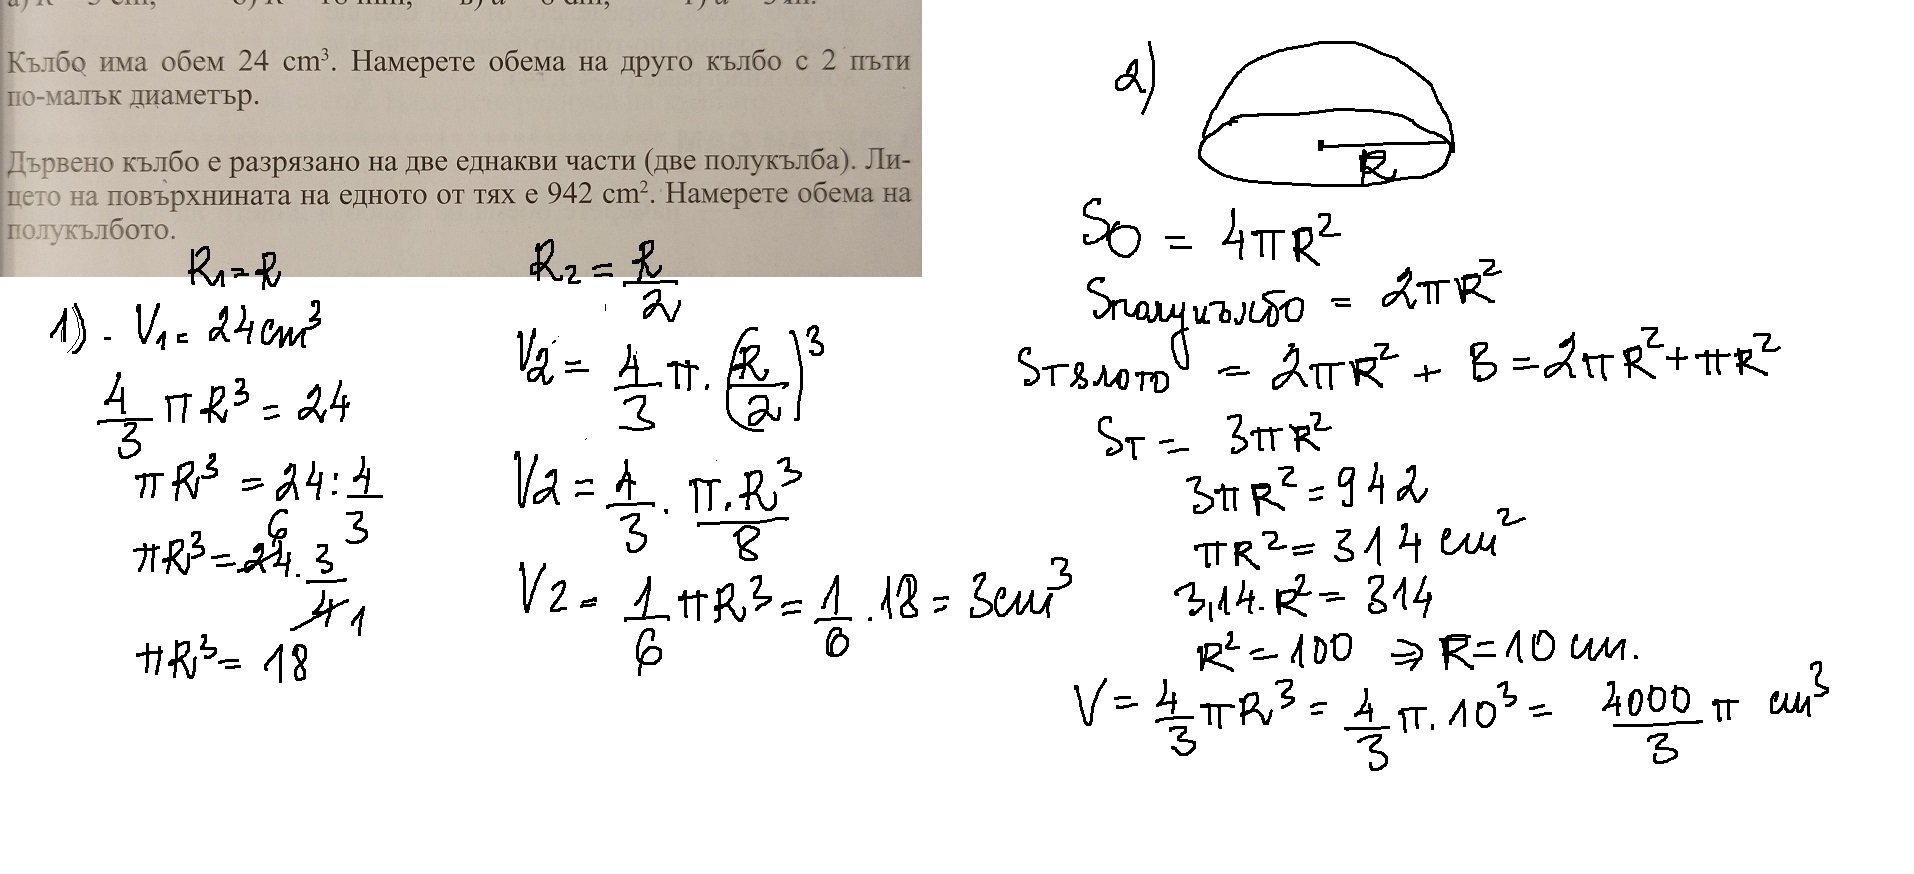 Кълбо има обем 24 cm³. Намерете обема на друго кълбо с 2 пъти
по-малък диаметър.
Дървено кълбо е разрязано на две еднакви части (две полукълба). Ли-
цето на повърхнината на едното от тях е 942 cm². Намерете обема на
полукълбото.
R1 = R
1) - V1 = 24 cm³
4/3 πR³ = 24
πR³ = 24 : 4/3
πR³ = 24 . 3/4 6 1
πR³ = 18
R2 = R/2
V2 = 4/3 π . (R/2)³
V2 = 4/3 . π.R³/8
V2 = 1/6 πR³ = 1/6 . 18 = 3cm³
2)
R
SO = 4πR²
Sполукълбо = 2πR²
Sтялото = 2πR² + B = 2πR² + πR²
Sт = 3πR²
3πR² = 942
πR² = 314 cm²
3,14.R² = 314
R² = 100 ⇒ R = 10 cm.
V = 4/3 πR³ = 4/3 π . 10³ = 4000/3 π cm³